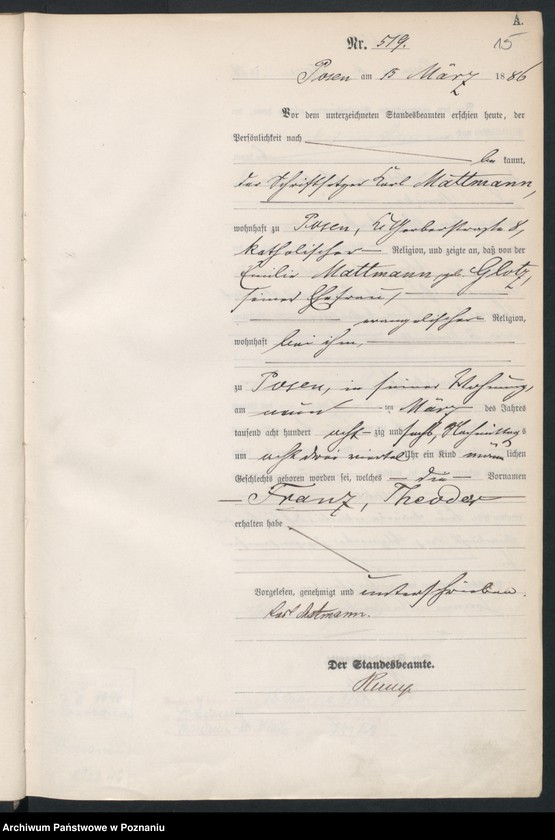 A.
15
Nr. 519.
Posen am 13 März 1886
Vor dem unterzeichneten Standesbeamten erschien heute, der
Persönlichkeit nach
be kannt,
der Schriftsetzer Karl Mattmann,
wohnhaft zu Posen, Kl. Gerberstraße 8,
katholischer Religion, und zeigte an, daß von der
Emilie Mattmann, geb. Glotz,
seiner Ehefrau,
evangelischer Religion,
wohnhaft bei ihm,
zu Posen, in seiner Wohnung,
am neun ten März des Jahres
tausend acht hundert acht zig und sechs, Nachmittags
um acht drei viertel Uhr ein Kind männ lichen
Geschlechts geboren worden sei, welches die Vornamen
Franz, Theodor
erhalten habe
Vorgelesen, genehmigt und unterschrieben.
Karl Matmann.
Der Standesbeamte.
Archiwum Państwowe w Poznaniu